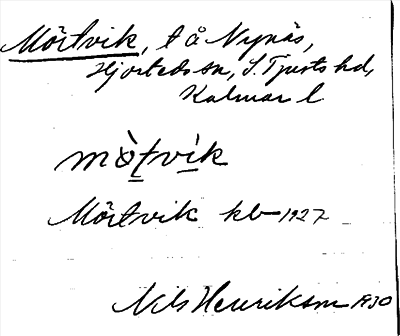 Mörtvik, t å Nynäs,
Hjorteds sn, S. Tjusts hd,
Kalmar l
mòtvik
Mörtvik kb 1927
Nils Henrikson 1930